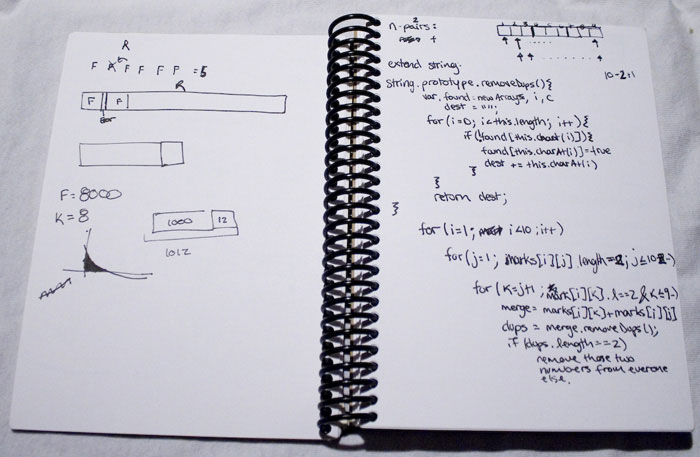 R
F F F F F = 5
R
F F
F = 8000
K = 8
1000 12
1012
n-pairs: 2
1 2 3 4 5 6 7 8 9
10-2+1
extend string.
String.prototype.removeDups(){
var found = new Array, i, c
dest = "";
for (i=0; i<this.length; i++){
if (!found[this.charAt(i)]){
found[this.charAt(i)]=true
dest += this.charAt(i)
}
}
return dest;
}
for (i=1; i<10; i++)
for (j=1; marks[i][j].length
for (k=j+1; mark[i][k].l==2 & k≤9
merge = marks[i][k]+marks[i][j]
dups = merge.removeDups();
if (dups.length==2)
remove those two
numbers from everone
else.